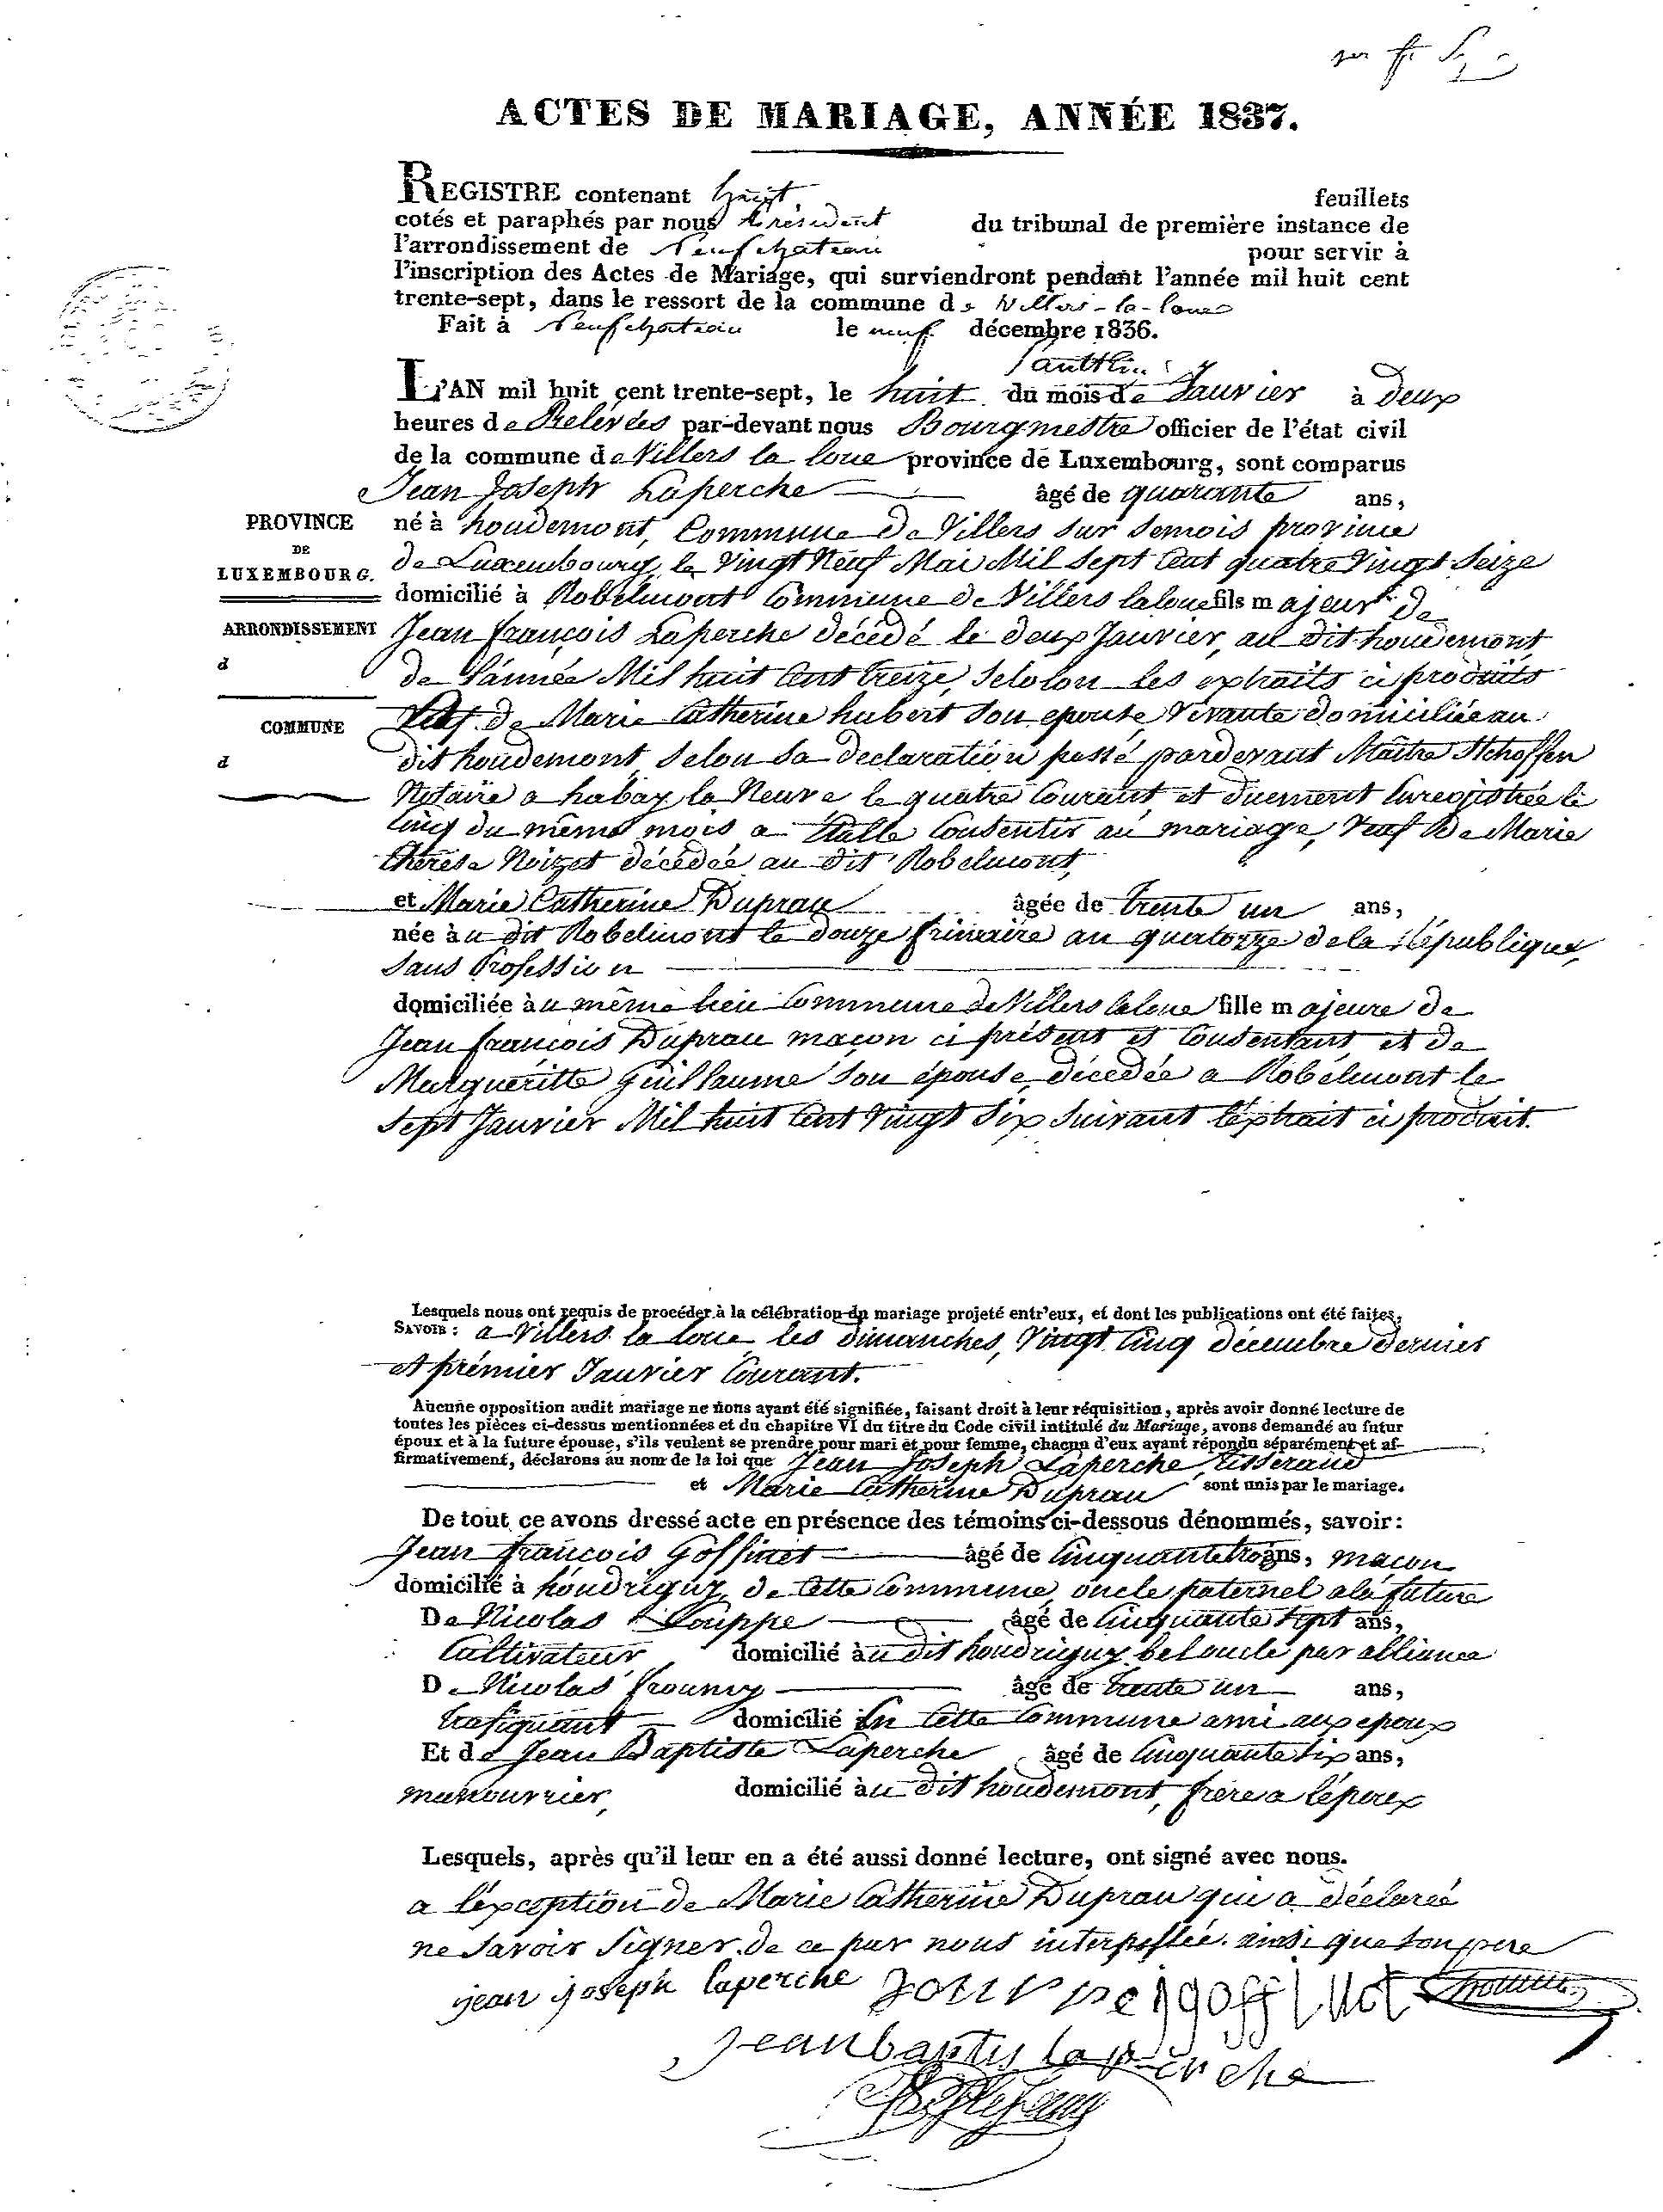 ACTES DE MARIAGE, ANNÉE 1837.
REGISTRE contenant huit feuillets
cotés et paraphés par nous Président du tribunal de première instance de
l'arrondissement de Neufchateau pour servir à
l'inscription des Actes de Mariage, qui surviendront pendant l'année mil huit cent
trente-sept, dans le ressort de la commune de Villers-la-loue
Fait à Neufchateau le neuf décembre 1836.
L'AN mil huit cent trente-sept, le huit du mois de Janvier à deux
heures de Relevées par-devant nous Bourgmestre officier de l'état civil
de la commune de Villers la loue province de Luxembourg, sont comparus
Jean Joseph Laperche âgé de quarante ans,
PROVINCE
DE
LUXEMBOURG.
ARRONDISSEMENT
d
COMMUNE
d
né à houdemont, Commune de Villers sur Semois province
de Luxembourg, le vingt Neuf Mai Mil Sept Cent quatre vingt Seize
domicilié à Robelmont Commune de Villers laloue fils majeur de
Jean françois Laperche décédé le deux Janvier, au dit houdemont,
de l'année Mil huit Cent treize, Selolon les extraits ci produits
de Marie Catherine hubert Son epouse, Vivante domiciliée au
dit houdemont, Selon Sa declaration passé pardevant Maître Schoffen
Notaire a habay la Neuve le quatre Courant, et duement Enregistrée le
Cinq du même mois a Etalle Consentir au mariage, Veuf de Marie
therese Noizet décédée au dit Robelmont,
et Marie Catherine Duprau âgée de trente un ans,
née au dit Robelmont le douze frimaire an quatorze de la République,
Sans Profession
domiciliée au même lieu Commune de Villers laloue fille majeure de
Jean françois Duprau maçon ci présent et Consentant, et de
Margueritte Guillaume Son épouse, décédée a Robélmont le
Sept Janvier Mil huit Cent Vingt Six Suivant l'éxtrait ci produit.
Lesquels nous ont requis de procéder à la célébration du mariage projeté entr'eux, et dont les publications ont été faites,
SAVOIR : a Villers la loue, les dimanches, Vingt Cinq décembre dernier
et prémier Janvier Courant.
Aucune opposition audit mariage ne nous ayant été signifiée, faisant droit à leur réquisition, après avoir donné lecture de
toutes les pièces ci-dessus mentionnées et du chapitre VI du titre du Code civil intitulé du Mariage, avons demandé au futur
époux et à la future épouse, s'ils veulent se prendre pour mari et pour femme, chacun d'eux ayant répondu séparément et af-
firmativement, déclarons au nom de la loi que Jean Joseph Laperche, tisserand
et Marie Catherine Duprau sont unis par le mariage.
De tout ce avons dressé acte en présence des témoins ci-dessous dénommés, savoir:
Jean françois Goffinet âgé de Cinquante trois ans, maçon
domicilié à houdrigny, de Cette Commune, oncle paternel a la future
De Nicolas Louppe âgé de Cinquante Sept ans,
Cultivateur domicilié au dit houdrigny bel oncle par alliance
De Nicolas frouncy âgé de trente un ans,
trafiquant domicilié En Cette Commune ami aux epoux
Et de Jean Baptiste Laperche âgé de Cinquante Six ans,
manouvrier, domicilié au dit houdemont, frère a l'époux
Lesquels, après qu'il leur en a été aussi donné lecture, ont signé avec nous.
a l'éxception de Marie Catherine Duprau qui a déclaréé
ne Savoir Signer, de ce par nous interpellée. ainsi que Son pere
jean joseph laperche Louppe jgoffinet
jeanbaptis laperche